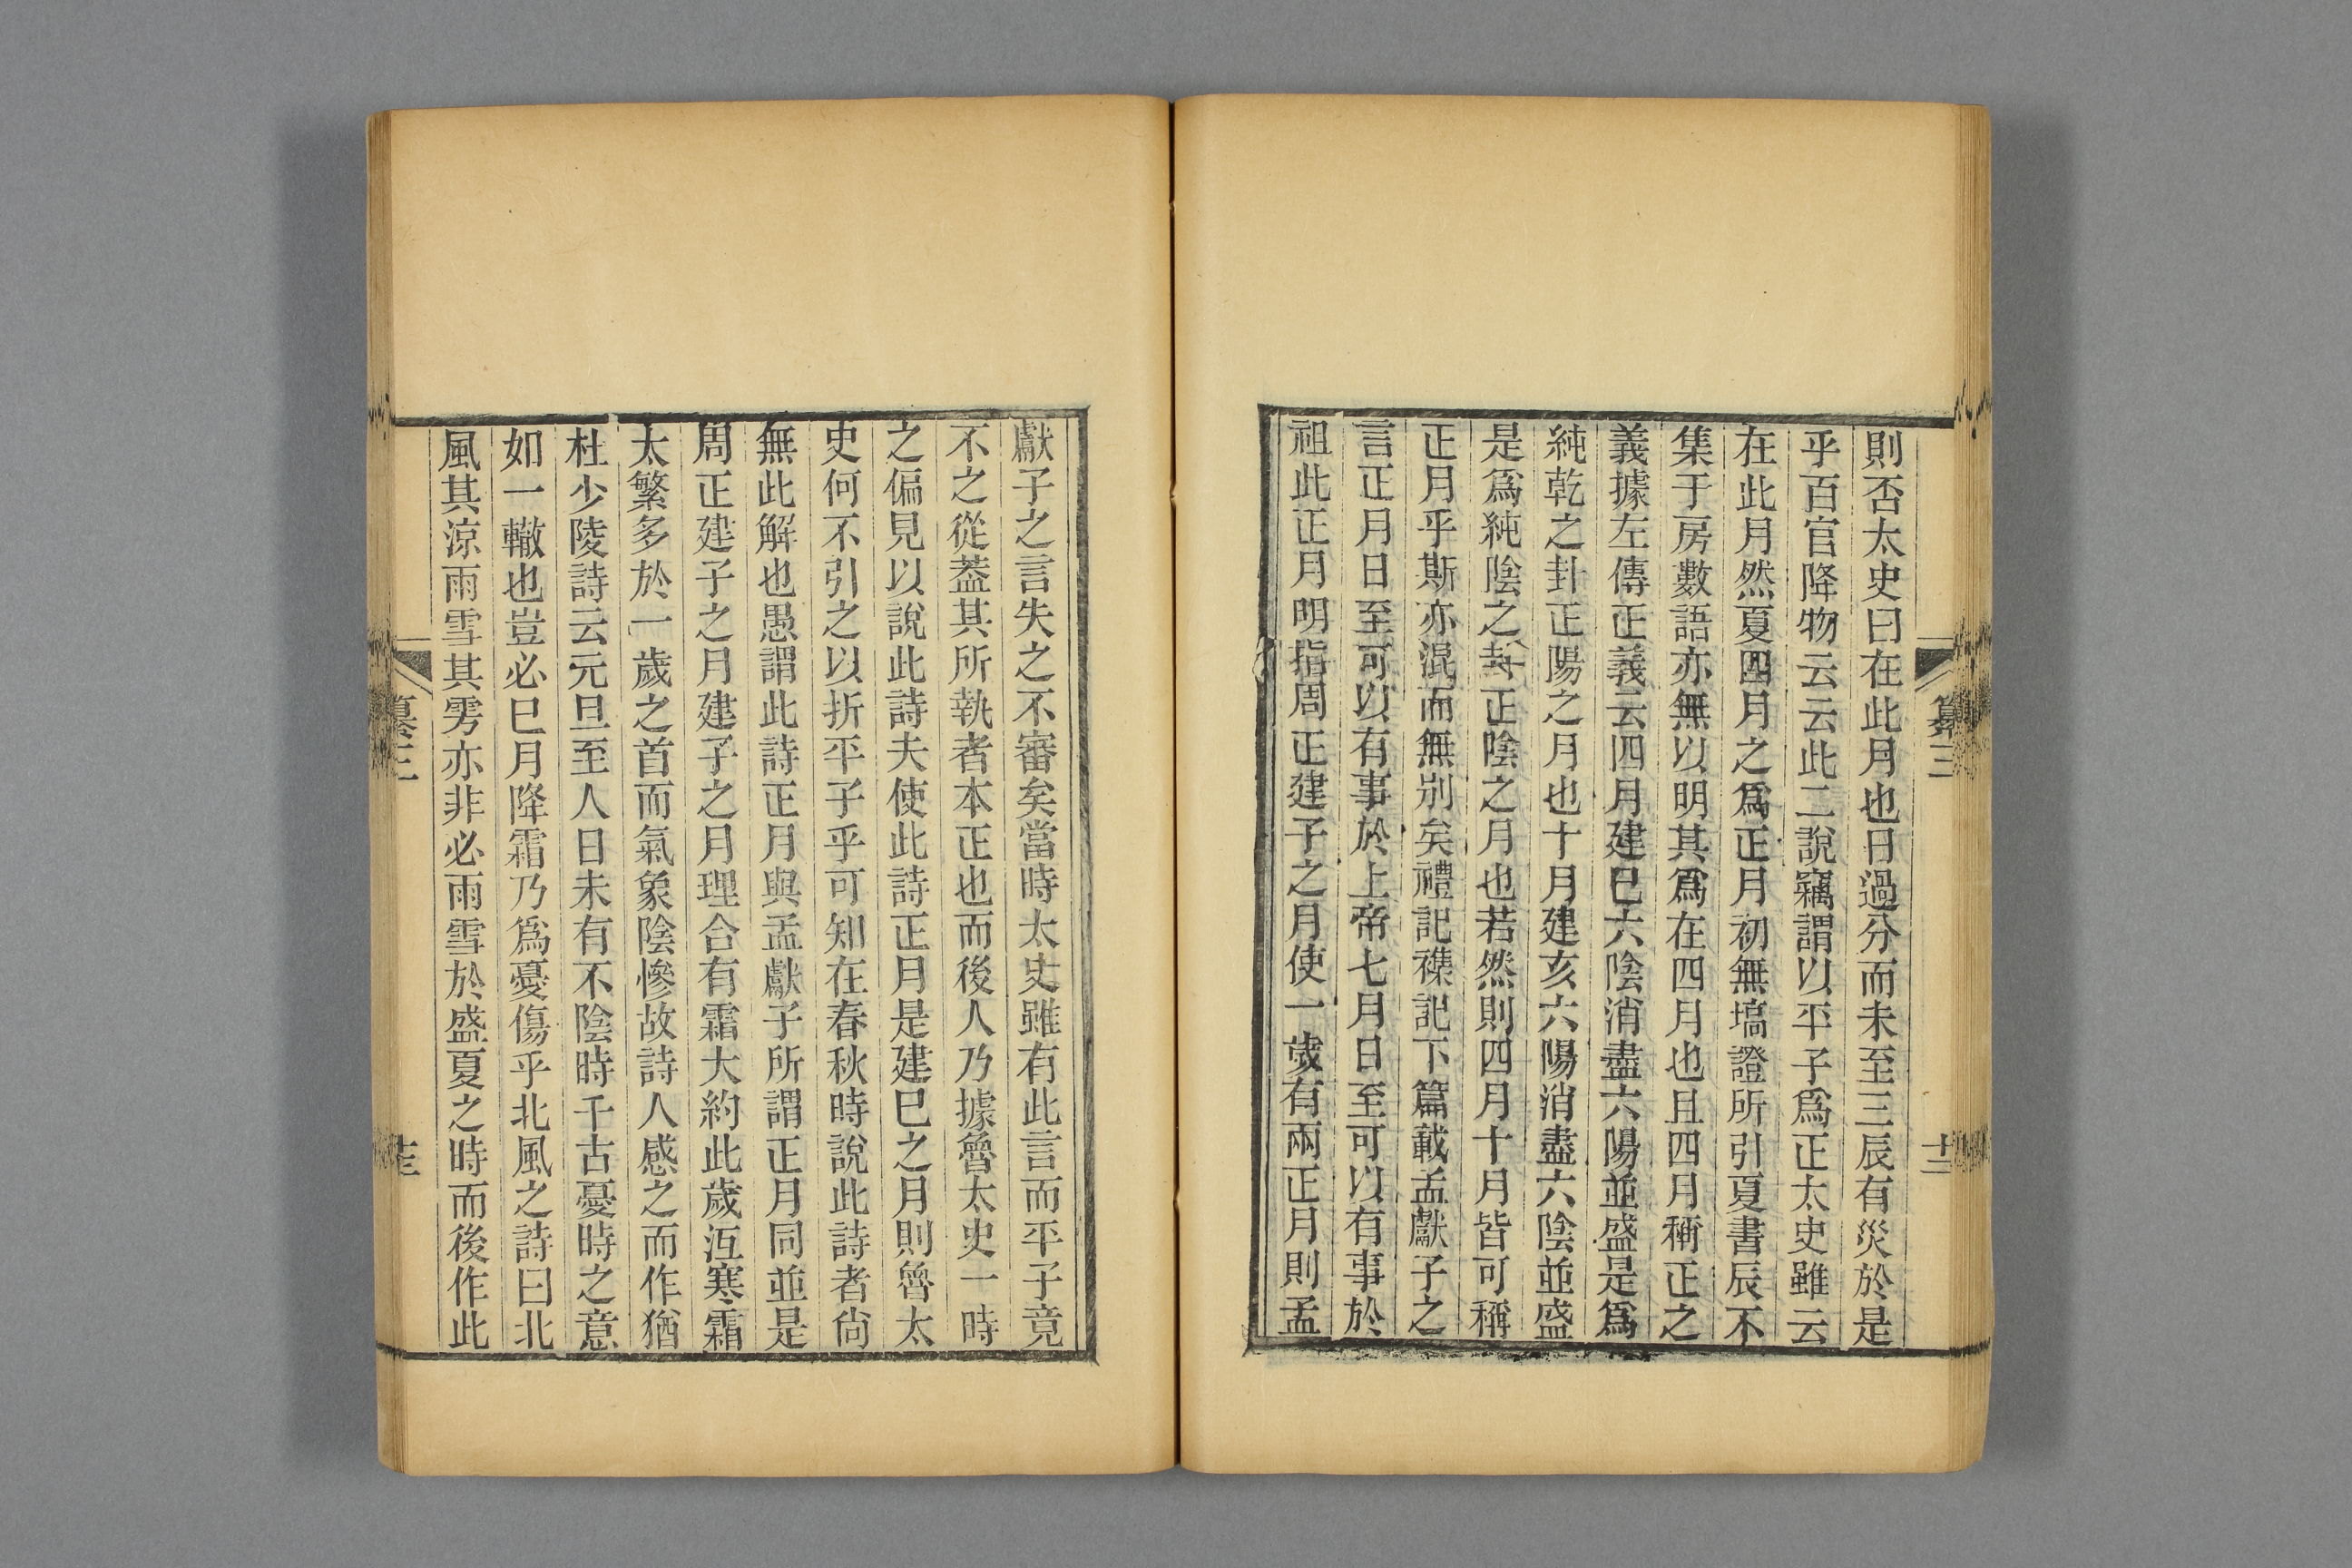 則否太史曰在此月也日過分而未至三辰有災於是
乎百官降物云云此二說竊謂以平子爲正太史雖云
在此月然夏四月之爲正月初無塙證所引夏書辰不
集于房數語亦無以明其爲在四月也且四月稱正之
義據左傳正義云四月建巳六陰消盡六陽並盛是爲
純乾之卦正陽之月也十月建亥六陽消盡六陰並盛
是爲純陰之卦正陰之月也若然則四月十月皆可稱
正月乎斯亦混而無別矣禮記襍記下篇載孟獻子之
言正月日至可以有事於上帝七月日至可以有事於
祖此正月明指周正建子之月使一歲有兩正月則孟
纂三
十二
獻子之言失之不審矣當時太史雖有此言而平子竟
不之從葢其所執者本正也而後人乃據魯太史一時
之偏見以說此詩夫使此詩正月是建巳之月則魯太
史何不引之以折平子乎可知在春秋時說此詩者尙
無此解也愚謂此詩正月與孟獻子所謂正月同並是
周正建子之月建子之月理合有霜大約此歲沍寒霜
太繁多於一歲之首而氣象陰慘故詩人感之而作猶
杜少陵詩云元旦至人日未有不陰時千古憂時之意
如一轍也豈必巳月降霜乃爲憂傷乎北風之詩曰北
風其涼雨雪其雱亦非必雨雪於盛夏之時而後作此
纂三